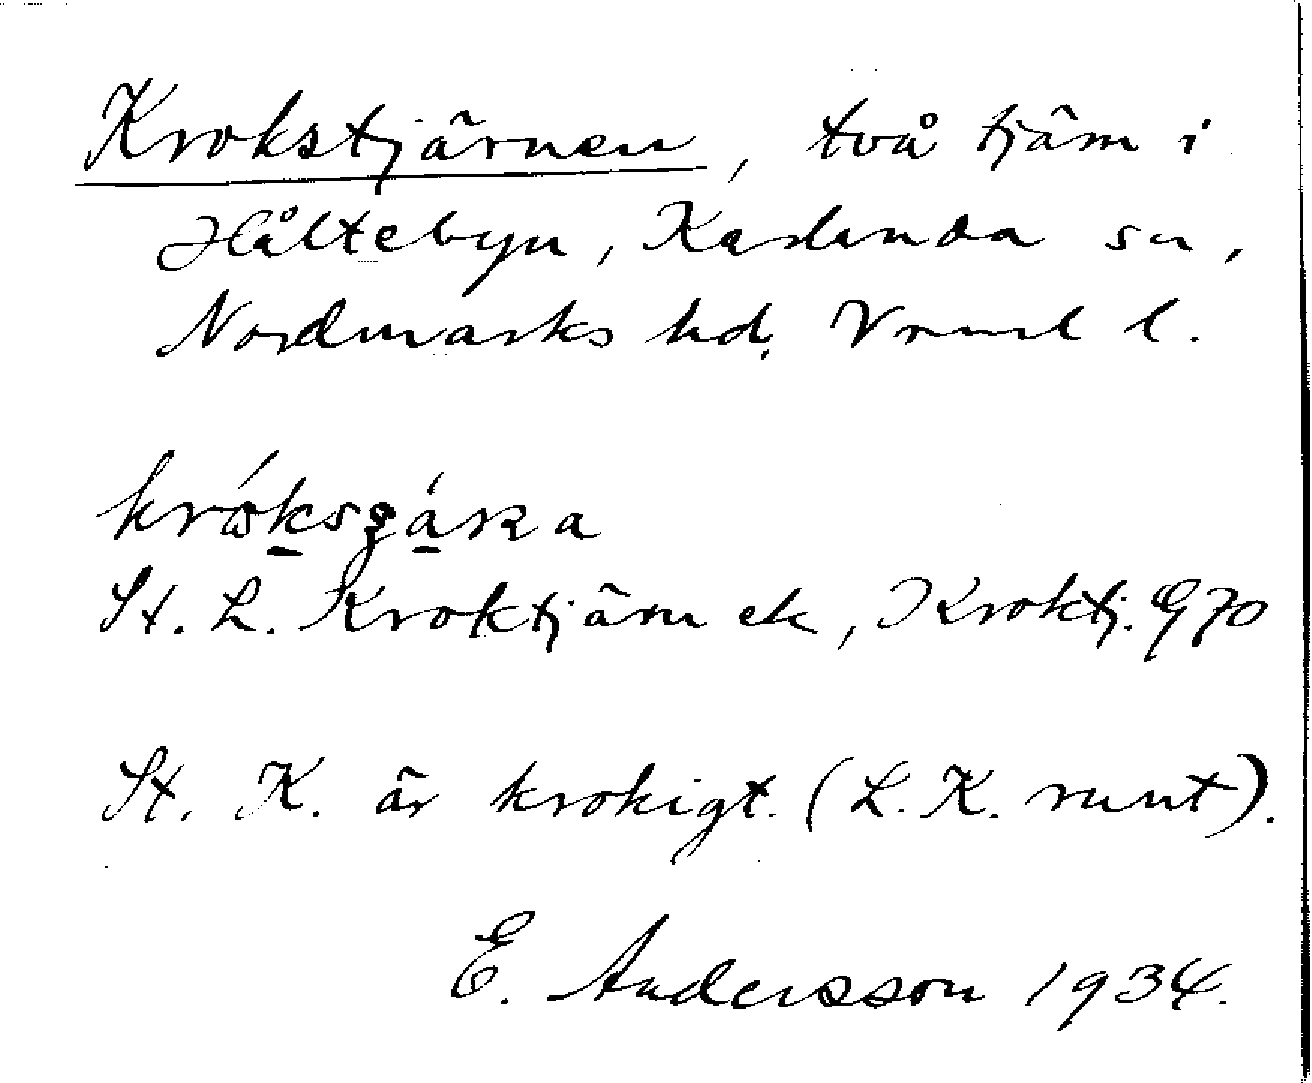 Krokstjärnen, två tjärn i
Håltebyn, Karlanda sn,
Nordmarks hd, Vrml l.
St. L. Kroktjärn ek, Kroktj. G70
St. K. är krokigt. (L. K. runt).
E. Andersson 1934.